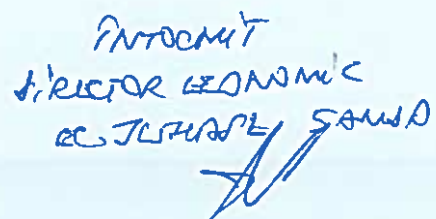 ÎNTOCMIT
DIRECTOR ECONOMIC
EC. JUHASZ SANDA